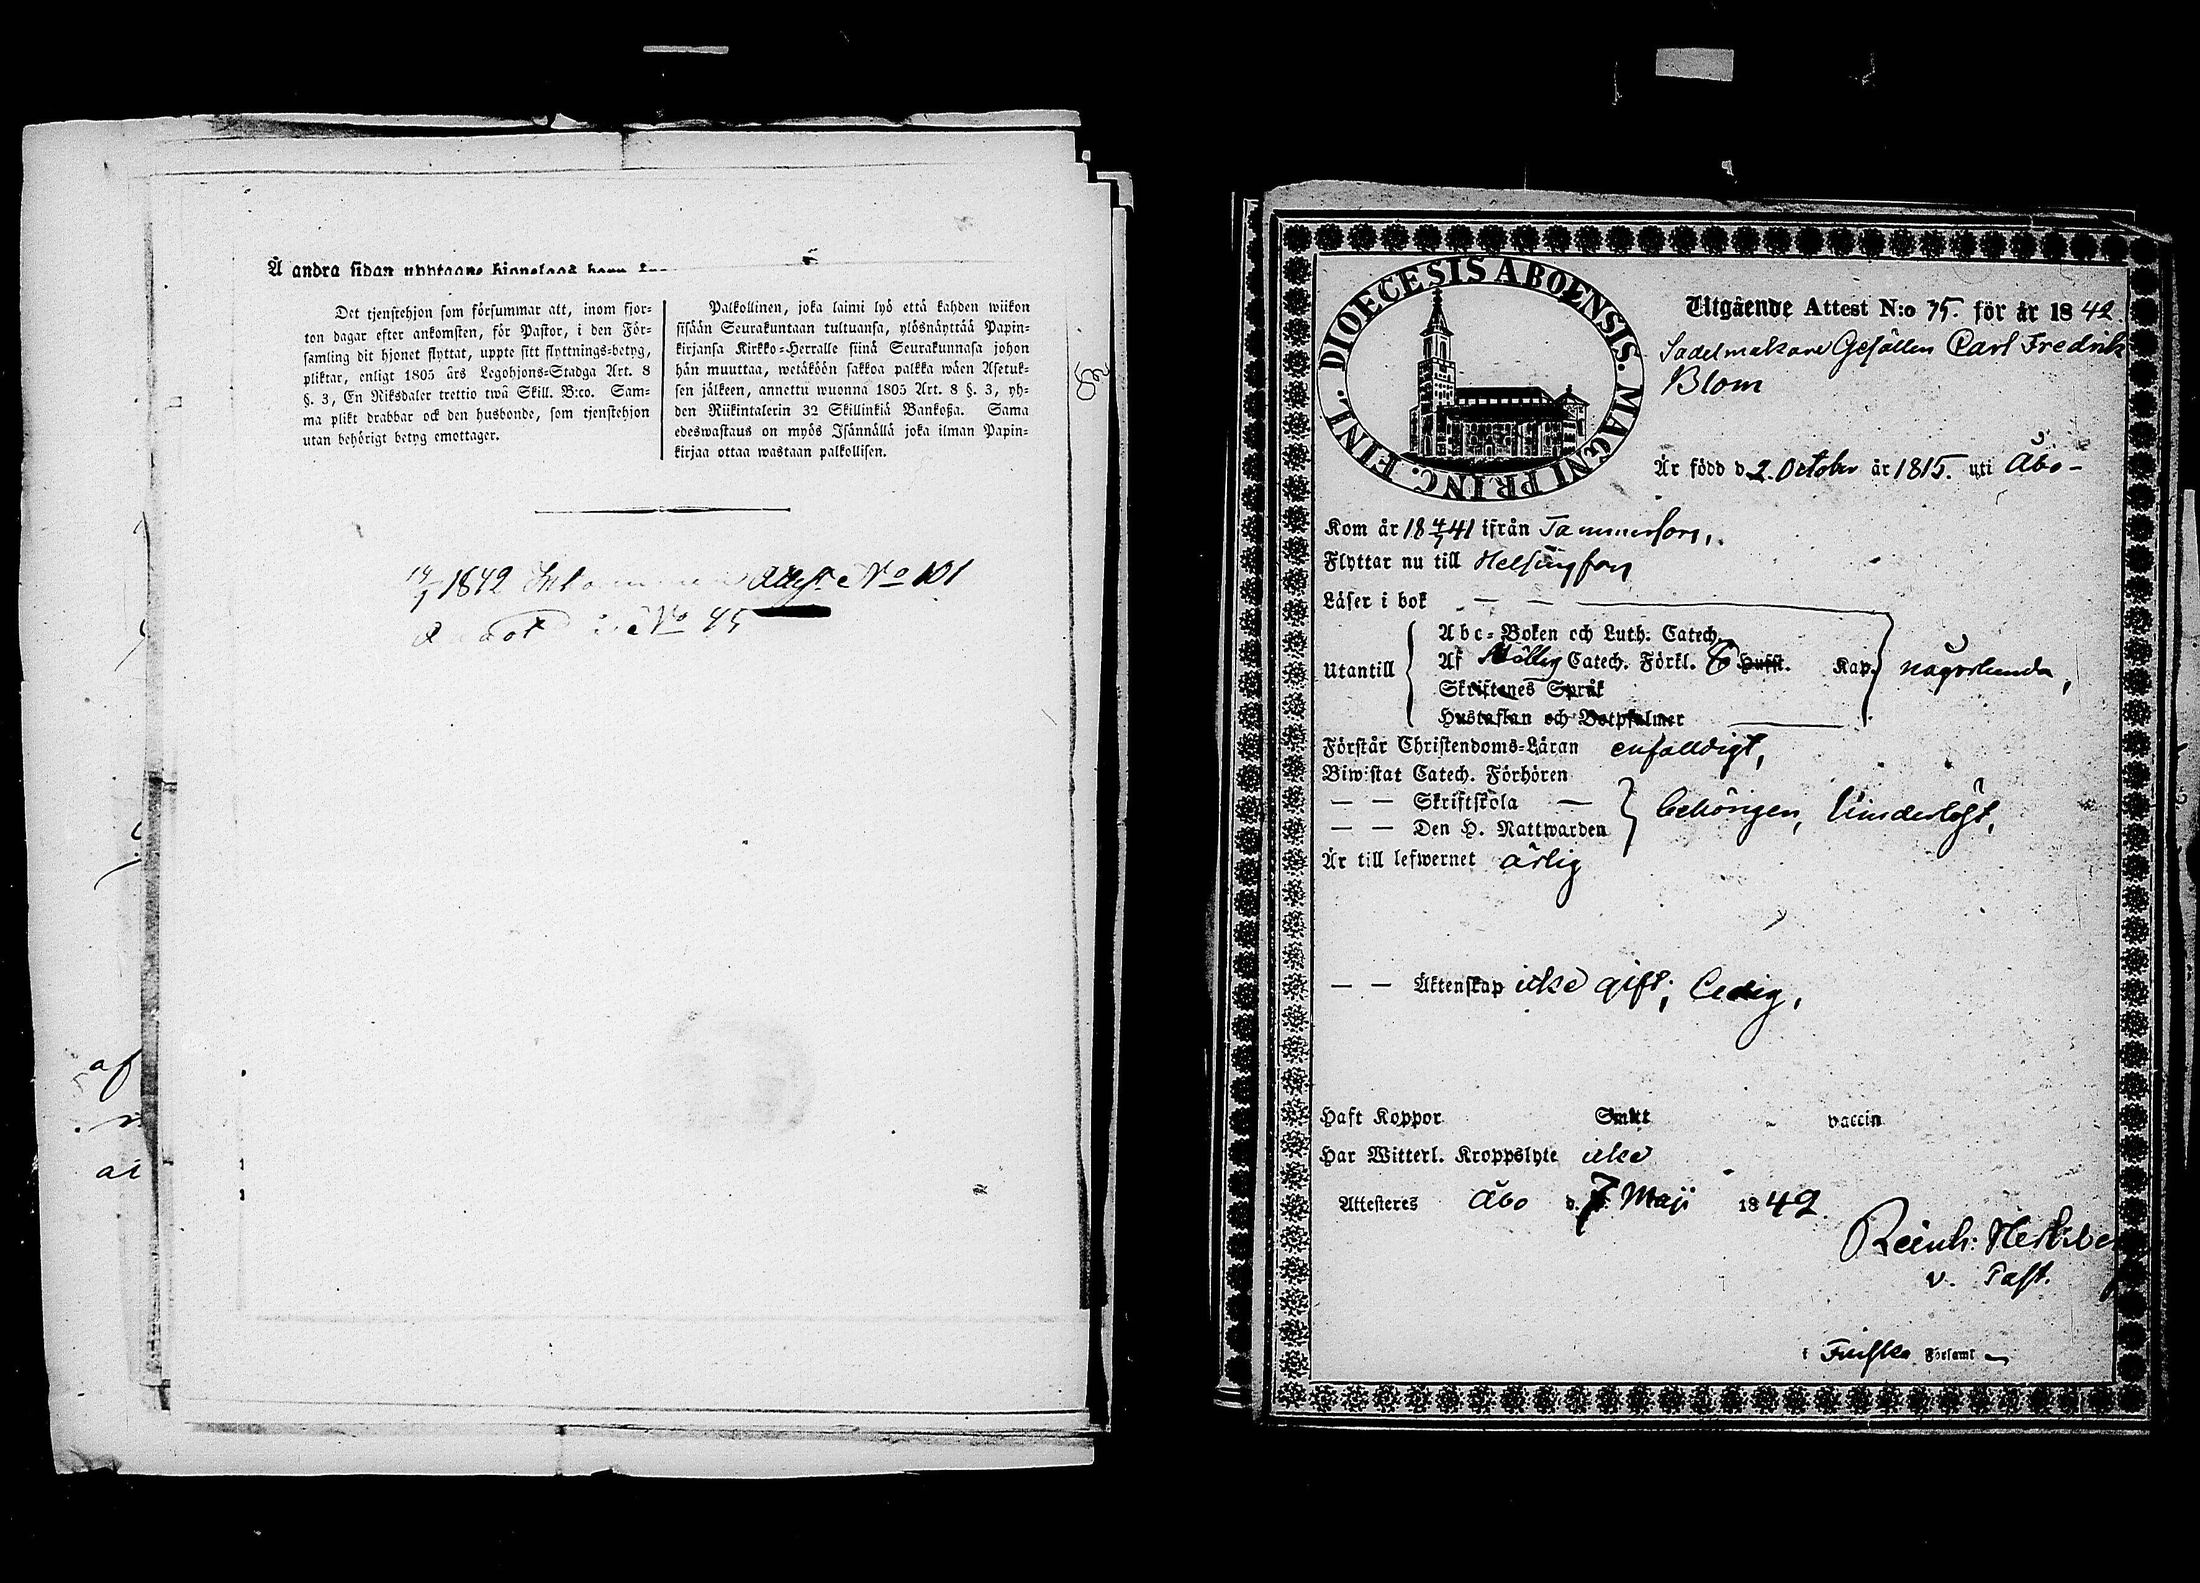 Å andra sidan
Det tjenstehjon som försummar att, inom fjor-
ton dagar efter ankomsten, för Pastor, i den För-
samling dit hjonet flyttat, uppte sitt flyttnings-betyg,
pliktar, enligt 1805 års Legohjons-Stadga Art. 8
§. 3, En Riksdaler trettio twå Skill. B:co. Sam-
ma plikt drabbar ock den husbonde, som tjenstehjon
utan behörigt betyg emottager.
Palkollinen, joka laimi lyö että kahden wiikon
sisään Seurakuntaan tultuansa, ylösnäyttää Papin-
kirjansa Kirkko-Herralle siinä Seurakunnasa johon
hän muuttaa, wetäköön sakkoa palkka wäen Asetuk-
sen jälkeen, annettu wuonna 1805 Art. 8 §. 3, yh-
den Riikintalerin 32 Skillinkiä Bankoßa. Sama
edeswastaus on myös Isännällä joka ilman Papin-
kirjaa ottaa wastaan palkollisen.
1842 No 101
No 45
af
DIOECESIS ABOENSIS. MAGNI PRINC. FINL.
Utgående Attest N:o 75. för år 1842.
Sadelmakare Gesällen Carl Fredrik
Blom
Är född d. 2. October år 1815. uti Åbo-
Kom år 18 4/7 41 ifrån Tammerfors,
Flyttar nu till Helsingfors
Läser i bok — —
Utantill
Abc-Boken och Luth. Catech.
Af Möllers Catech. Förkl. 6 Hufst. Kap. någorlunda,
Skriftenes Språk
Hustaflan och Botpsalmer
Förstår Christendoms-Läran enfaldigt,
Biwistat Catech. Förhören
— — Skriftskola —
— — Den H. Nattwarden
behörigen,
Är till lefwernet ärlig
— — Äktenskap icke gift; Ledig,
Haft Koppor Smitt vaccin
Har Witterl. Kroppslyte icke
Attesteres Åbo d. 7 Maji 1842.
Reinh:
v. Past.
i Finska Församl